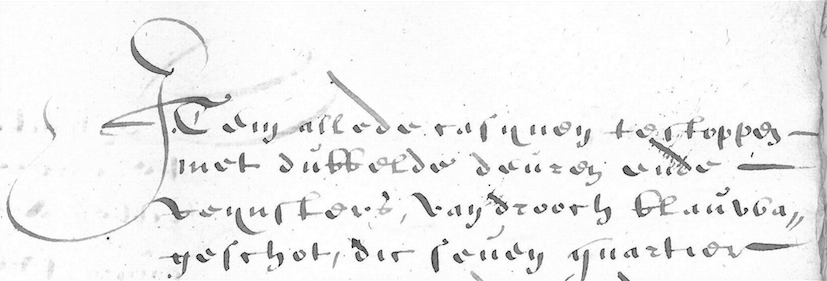 Item alle de casynen te stoppen
met dubbelde deuren ende
vennsters, van drooch klauwwa„
geschot, die seuen quartier